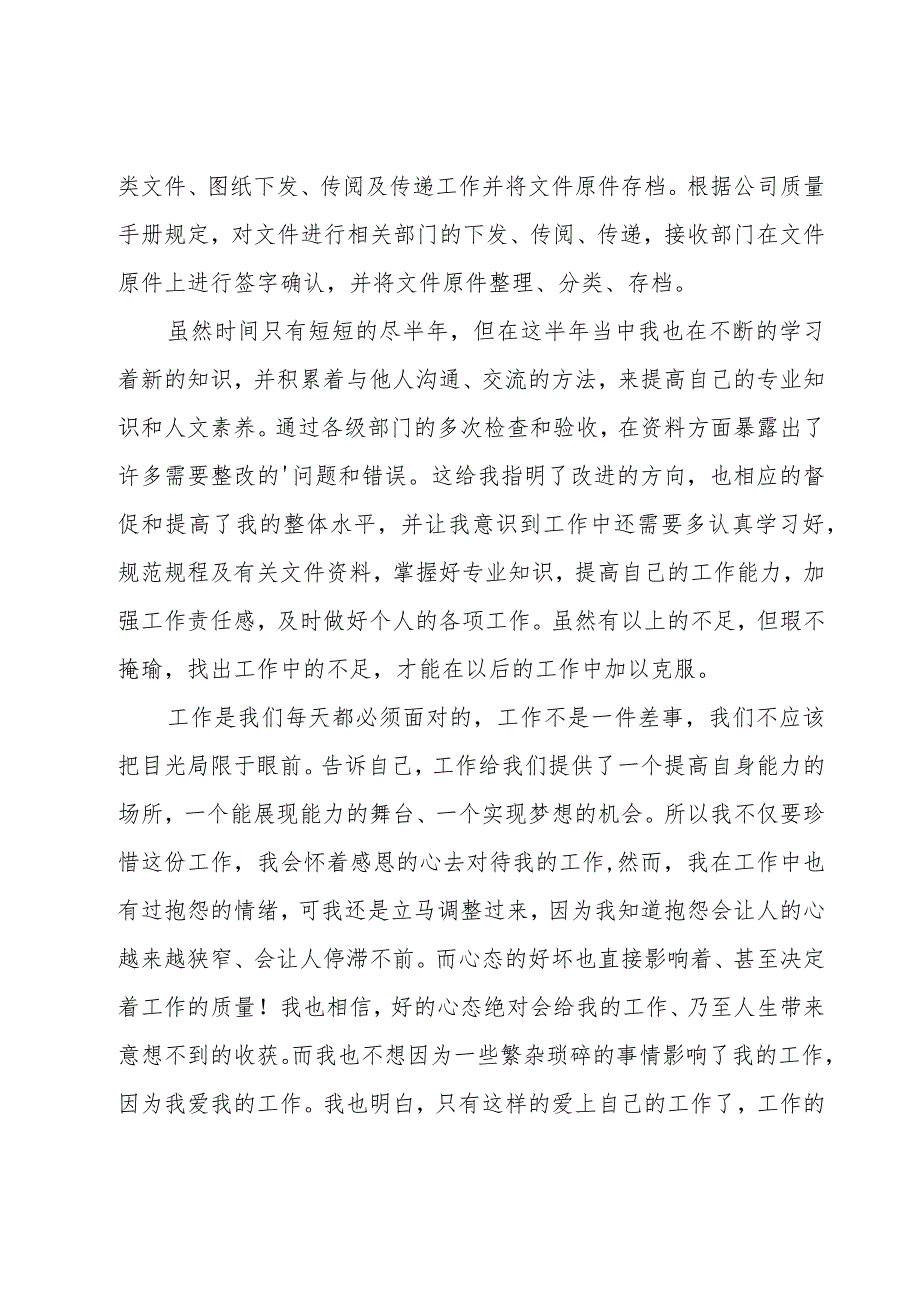 类文件、图纸下发、传阅及传递工作并将文件原件存档。根据公司质量
手册规定，对文件进行相关部门的下发、传阅、传递，接收部门在文件
原件上进行签字确认，并将文件原件整理、分类、存档。
虽然时间只有短短的尽半年，但在这半年当中我也在不断的学习
着新的知识，并积累着与他人沟通、交流的方法，来提高自己的专业知
识和人文素养。通过各级部门的多次检查和验收，在资料方面暴露出了
许多需要整改的'问题和错误。这给我指明了改进的方向，也相应的督
促和提高了我的整体水平，并让我意识到工作中还需要多认真学习好，
规范规程及有关文件资料，掌握好专业知识，提高自己的工作能力，加
强工作责任感，及时做好个人的各项工作。虽然有以上的不足，但瑕不
掩瑜，找出工作中的不足，才能在以后的工作中加以克服。
工作是我们每天都必须面对的，工作不是一件差事，我们不应该
把目光局限于眼前。告诉自己，工作给我们提供了一个提高自身能力的
场所，一个能展现能力的舞台、一个实现梦想的机会。所以我不仅要珍
惜这份工作，我会怀着感恩的心去对待我的工作,然而，我在工作中也
有过抱怨的情绪，可我还是立马调整过来，因为我知道抱怨会让人的心
越来越狭窄、会让人停滞不前。而心态的好坏也直接影响着、甚至决定
着工作的质量！我也相信，好的心态绝对会给我的工作、乃至人生带来
意想不到的收获。而我也不想因为一些繁杂琐碎的事情影响了我的工作，
因为我爱我的工作。我也明白，只有这样的爱上自己的工作了，工作的